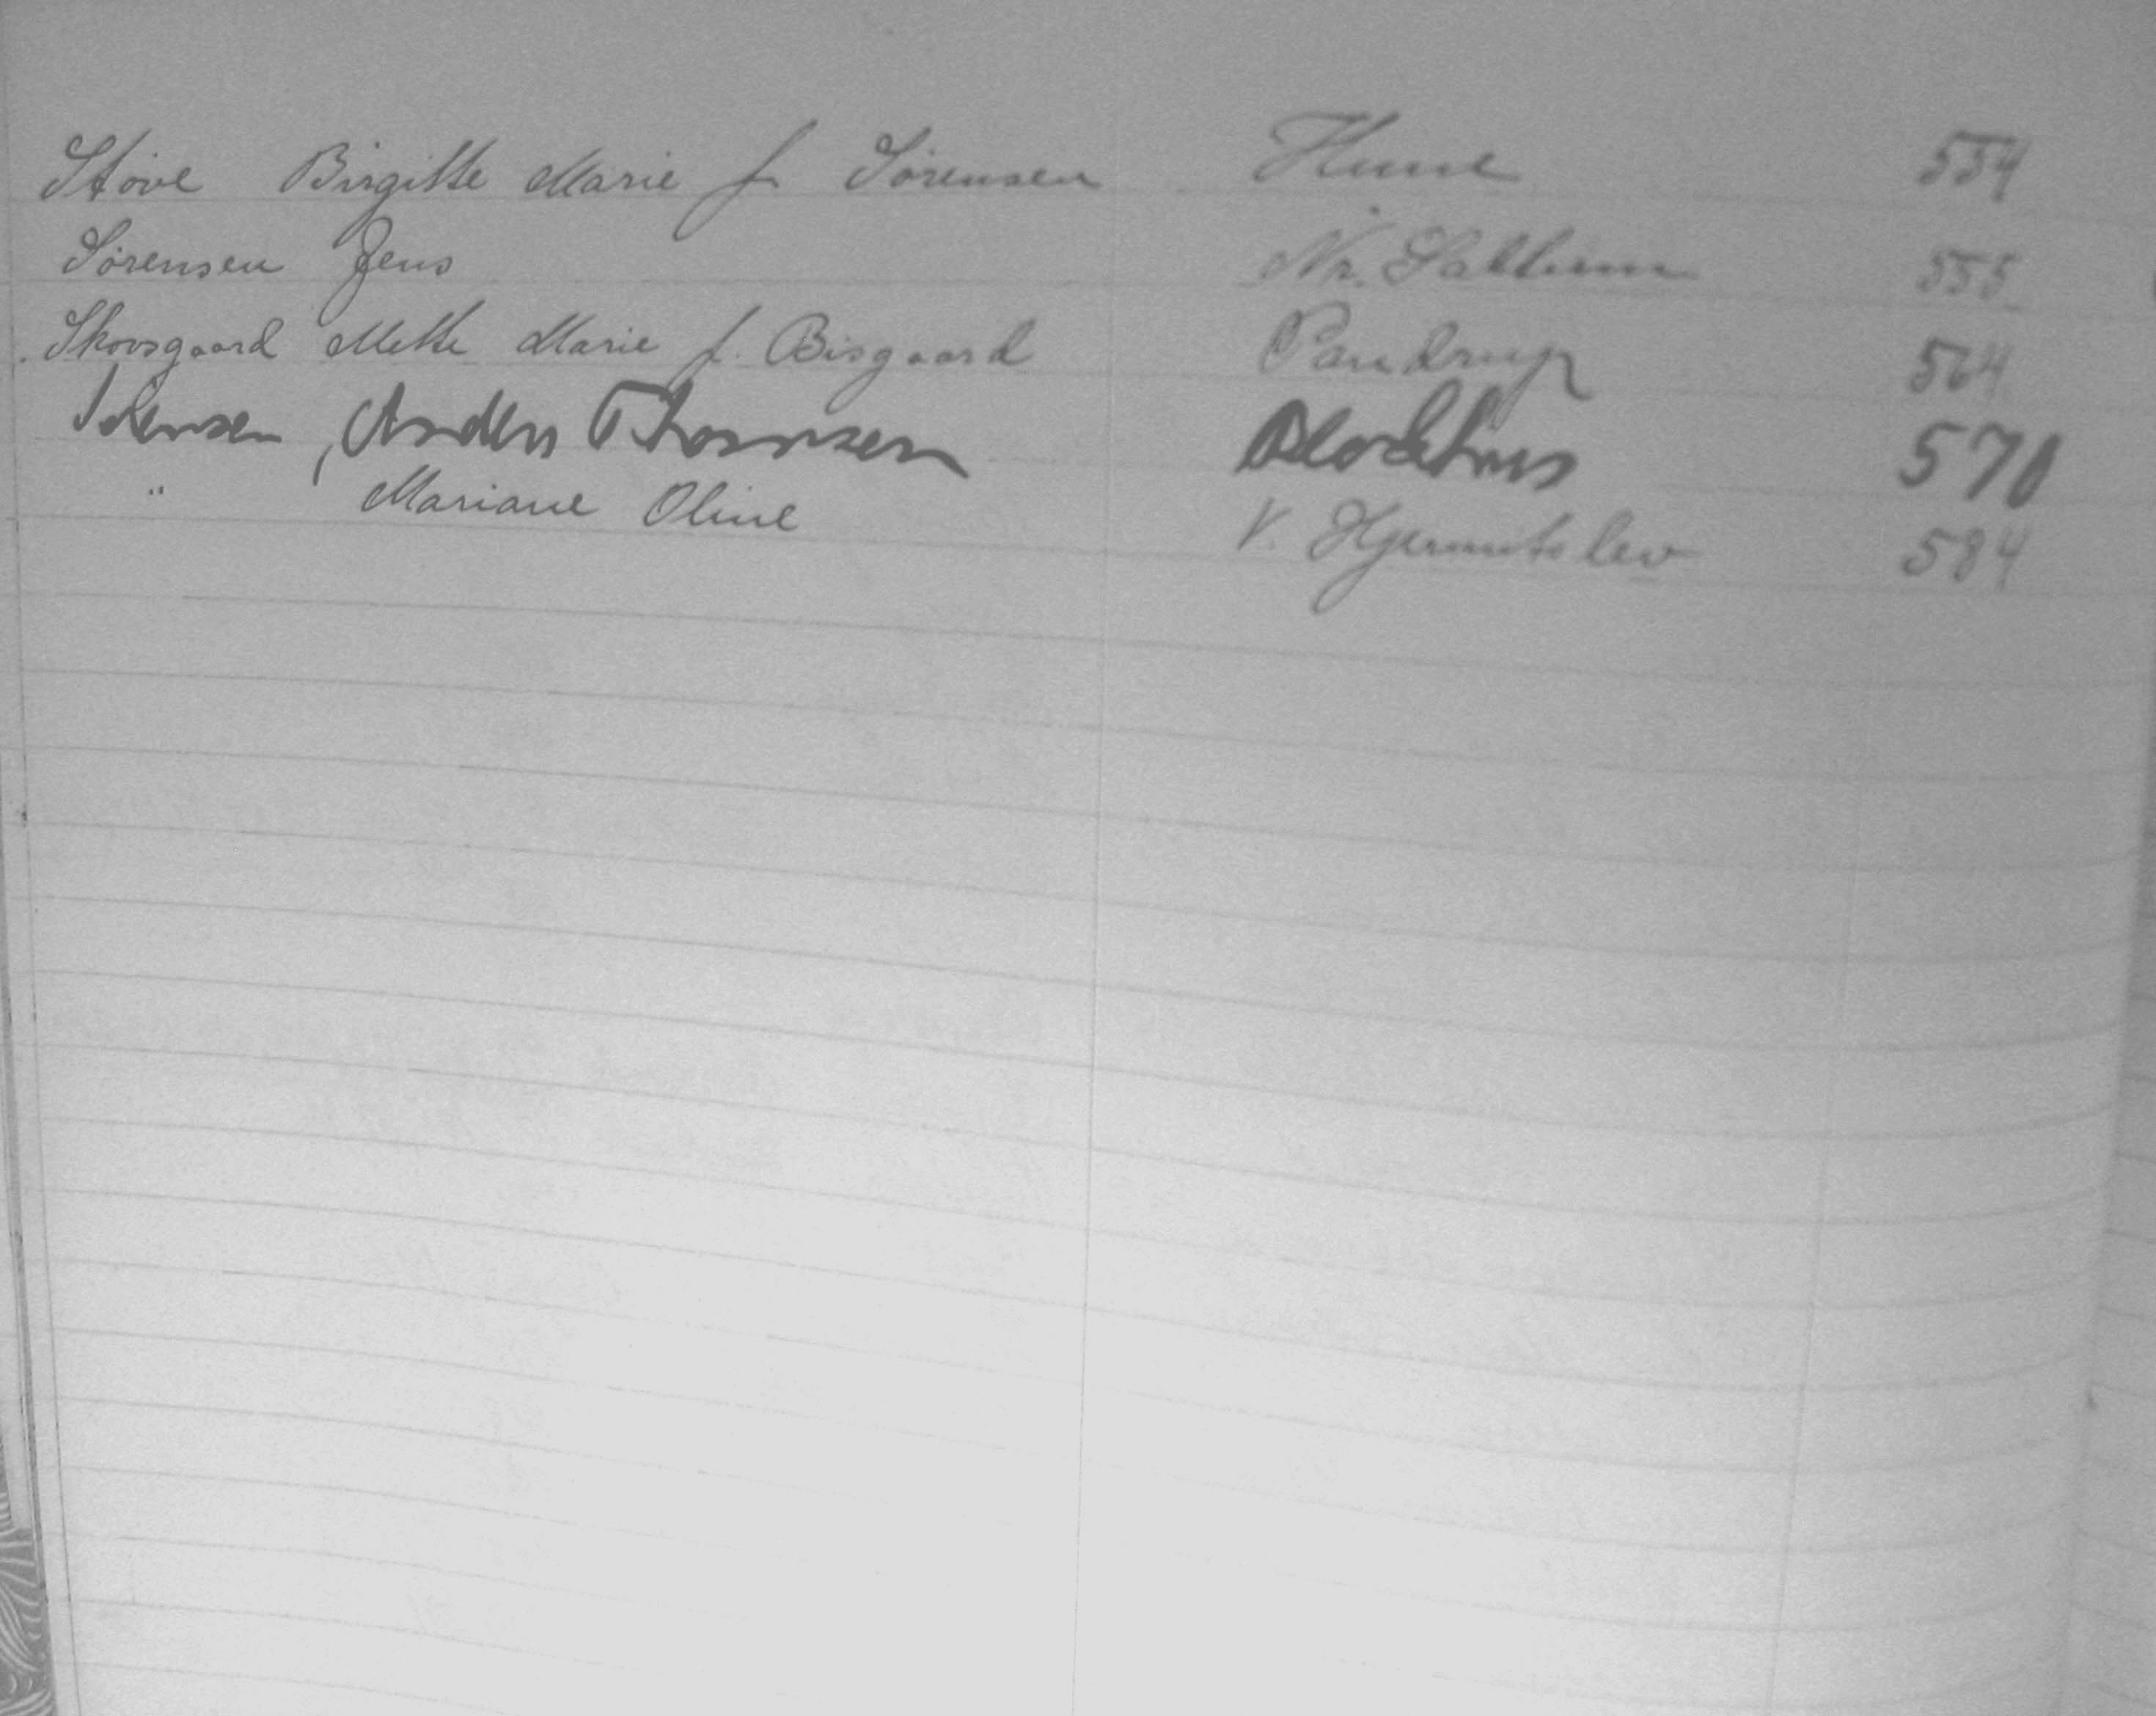 Støve Birgitte Marie f. Sørensen Hune 554
Sørensen Jens Nr. Saltum 555
Skovsgaard Mette Marie f. Bisgaard Pandrup 564
Sørensen, Anders Thomsen Blokhus 570
" Mariane Oline V. Hjermitslev 584